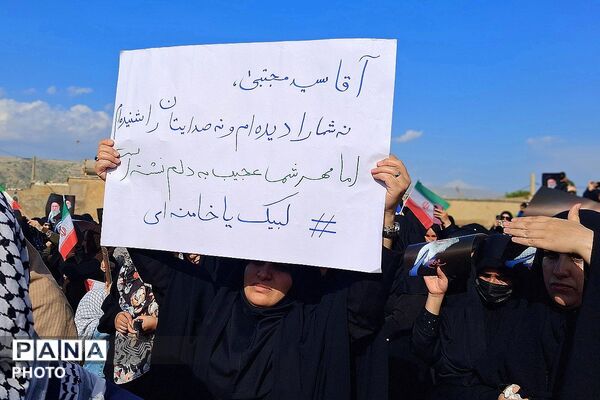 آقا سید مجتبی،
نه شما را دیده‌ام و نه صدایتان را شنیده‌ام
اما مهر شما عجیب به دلم نشسته
#لبیک یا خامنه ای
PANA
PHOTO